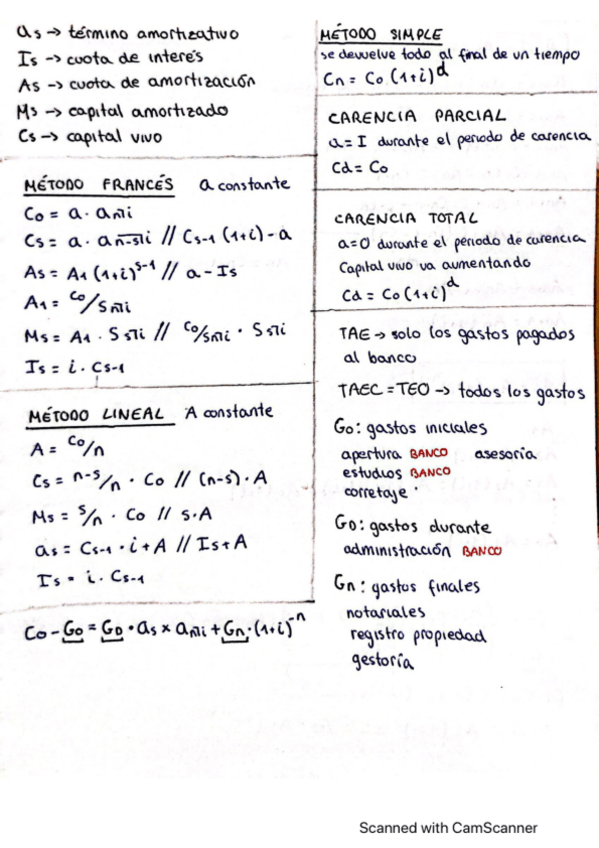 as → término amortizativo
Is → cuota de interés
As → cuota de amortización
Ms → capital amortizado
Cs → capital vivo
MÉTODO FRANCÉS a constante
Co = a · an̅|i
Cs = a · an̅-s̅|i // Cs-1 (1+i) - a
As = A1 (1+i)^s-1 // a - Is
A1 = Co/Sn̅|i
Ms = A1 · Ss̅|i // Co/Sn̅|i · Ss̅|i
Is = i · Cs-1
MÉTODO LINEAL A constante
A = Co/n
Cs = n-s/n · Co // (n-s) · A
Ms = s/n · Co // s·A
as = Cs-1 · i + A // Is + A
Is = i · Cs-1
Co - Go = GD · as × an̅|i + Gn · (1+i)^-n
MÉTODO SIMPLE
se devuelve todo al final de un tiempo
Cn = Co (1+i)^d
CARENCIA PARCIAL
a = I durante el periodo de carencia
Cd = Co
CARENCIA TOTAL
a=0 durante el periodo de carencia
Capital vivo va aumentando
Cd = Co (1+i)^d
TAE → solo los gastos pagados
al banco
TAEC = TEO → todos los gastos
Go: gastos iniciales
apertura BANCO asesoría
estudios BANCO
corretaje
GD: gastos durante
administración BANCO
Gn: gastos finales
notariales
registro propiedad
gestoría
Scanned with CamScanner